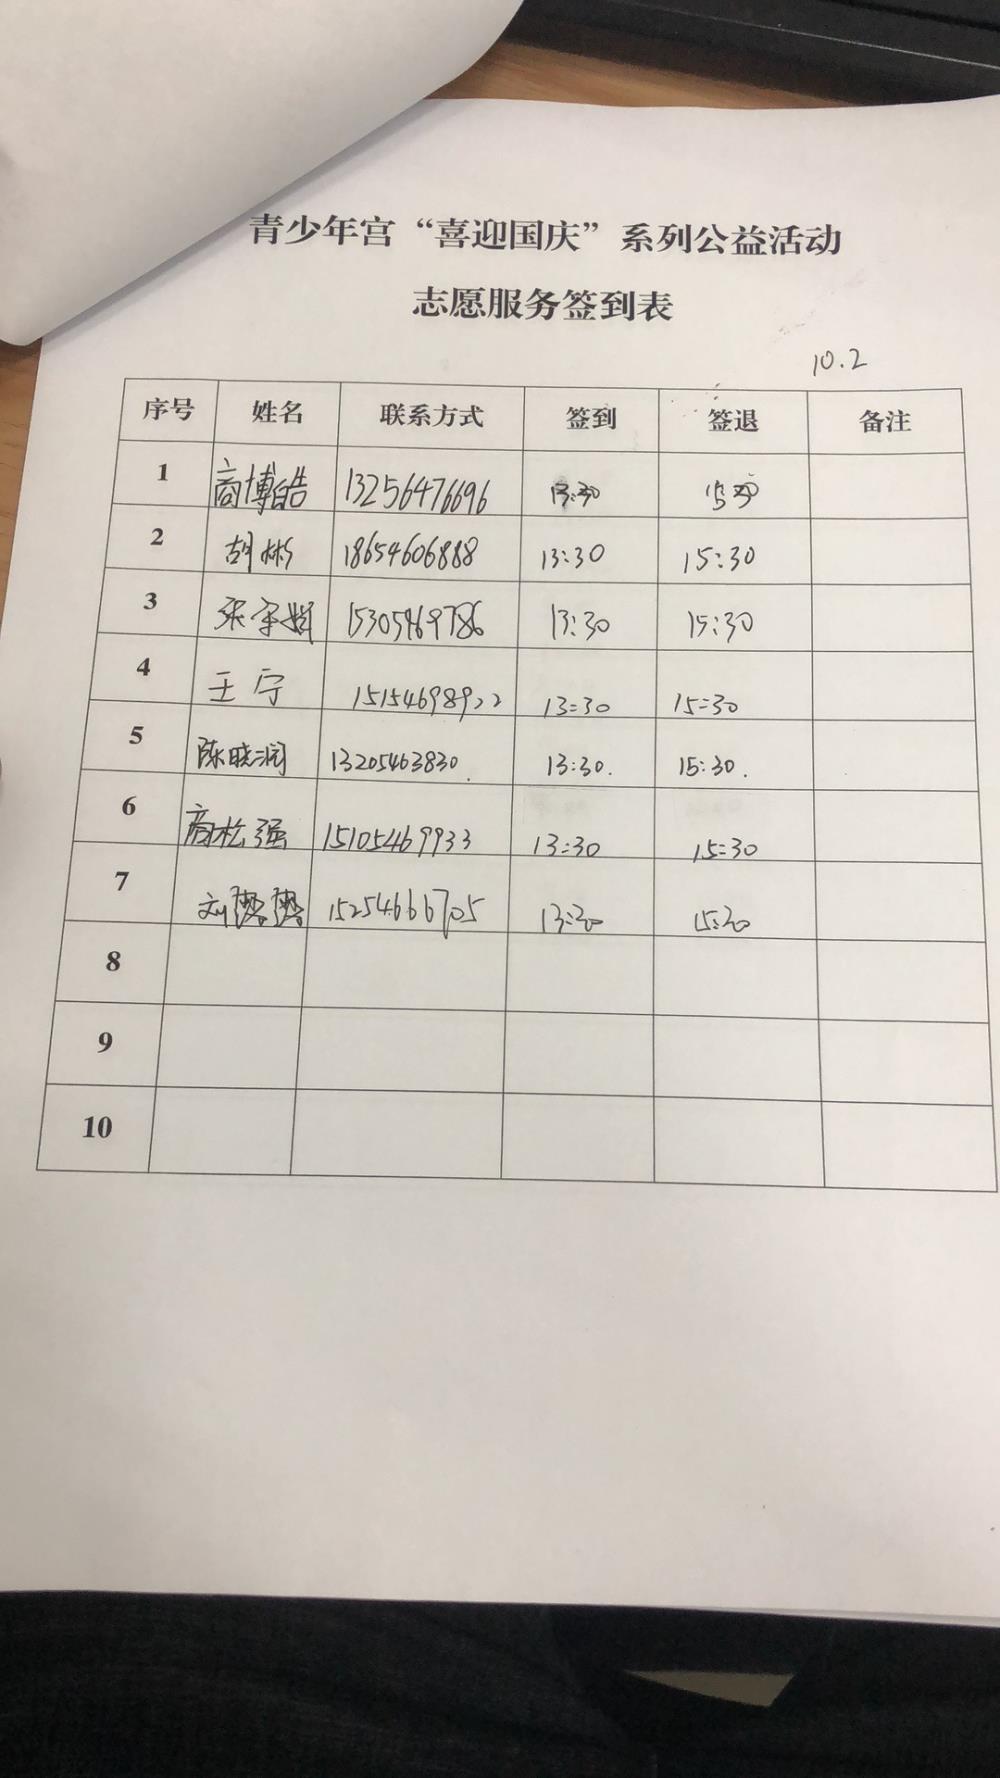 青少年宫“喜迎国庆”系列公益活动
志愿服务签到表
10.2
序号 姓名 联系方式 签到 签退 备注
1 商博皓 13256476696 13:30 15:30
2 胡彬 18654606888 13:30 15:30
3 15305469786 13:30 15:30
4 王宁 15154698922 13:30 15:30
5 陈晓润 13205463830. 13:30. 15:30.
6 商松强 15105469933 13:30 15:30
7 刘 15254666705 13:30 15:30
8
9
10